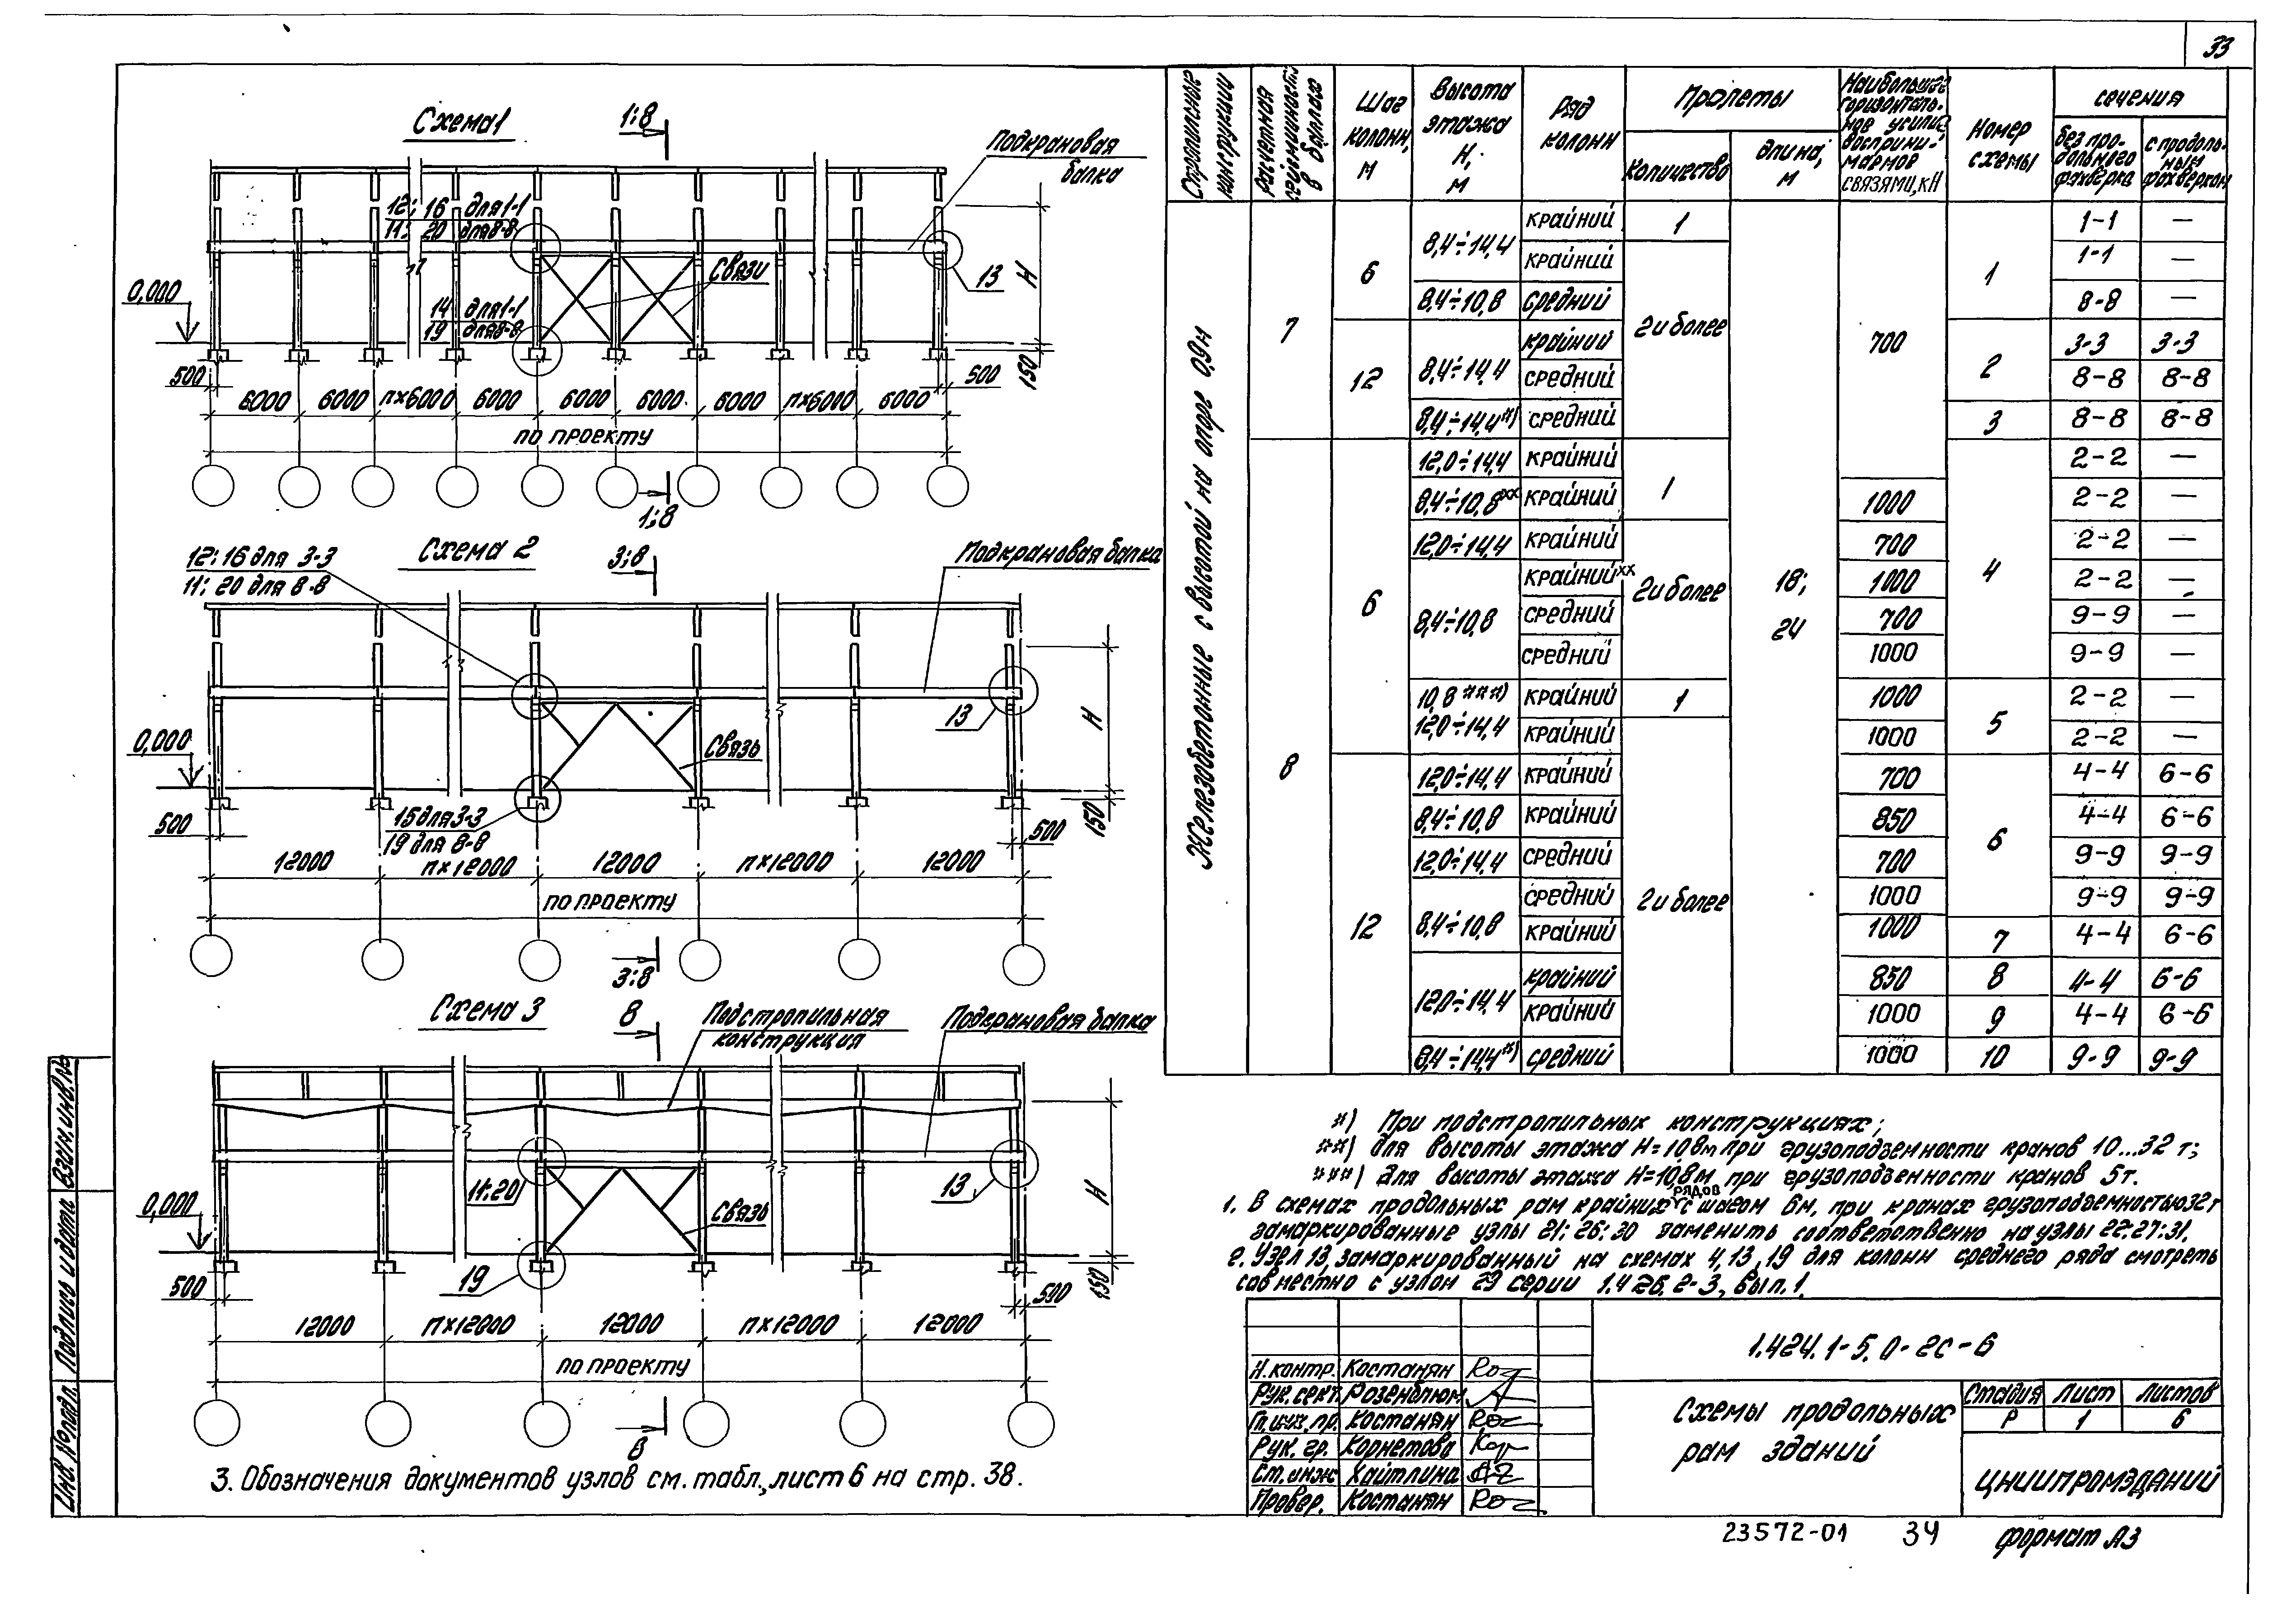 33
Схема 1
1;8
Подкрановая
балка
12; 16 для 1-1
11; 20 для 8-8
Связи
13
Н
0,000
14 для 1-1
19 для 8-8
150
500
500
6000 6000 п×6000 6000 6000 6000 6000 п×6000 6000
по проекту
1;8
Схема 2
3;8
12; 16 для 3-3
11; 20 для 8-8
Подкрановая балка
13
Н
0,000
Связь
15 для 3-3
19 для 8-8
150
500
500
12000 п×12000 12000 п×12000 12000
по проекту
3;8
Схема 3
8
Подстропильная
конструкция
Подкрановая балка
11; 20
13
Н
0,000
Связь
19
150
500
500
12000 п×12000 12000 п×12000 12000
по проекту
8
3. Обозначения документов узлов см. табл., лист 6 на стр. 38.
Стропильные конструкции
Расчетная сейсмичность в баллах
Шаг колонн, м
Высота этажа Н, м
Ряд колонн
Пролеты
Количество
длина, м
Наибольшее горизонтальное усилие воспринимаемое связями, кН
Номер схемы
сечения
без продольного фахверка
с продольным фахверком
Железобетонные с высотой на опоре 0,9м
7 6 8,4÷14,4 крайний 1 18; 24 700 1 1-1 —
крайний 2 и более 1-1 —
8,4÷10,8 средний 8-8 —
12 8,4÷14,4 крайний 2 3-3 3-3
средний 8-8 8-8
8,4÷14,4*) средний 3 8-8 8-8
8 6 12,0÷14,4 крайний 1 4 2-2 —
8,4÷10,8** крайний 1000 2-2 —
12,0÷14,4 крайний 2 и более 700 2-2 —
8,4÷10,8 крайний** 1000 2-2 —
средний 700 9-9 —
средний 1000 9-9 —
10,8***) крайний 1 1000 5 2-2 —
12,0÷14,4 крайний 2 и более 1000 2-2 —
12 12,0÷14,4 крайний 700 6 4-4 6-6
8,4÷10,8 крайний 850 4-4 6-6
12,0÷14,4 средний 700 9-9 9-9
8,4÷10,8 средний 1000 9-9 9-9
крайний 1000 7 4-4 6-6
12,0÷14,4 крайний 850 8 4-4 6-6
крайний 1000 9 4-4 6-6
8,4÷14,4*) средний 1000 10 9-9 9-9
*) При подстропильных конструкциях;
**) для высоты этажа Н=10,8м при грузоподъемности кранов 10...32 т;
***) Для высоты этажа Н=10,8м при грузоподъемности кранов 5т.
1. В схемах продольных рам крайних рядов с шагом 6м, при кранах грузоподъемностью 32т
замаркированные узлы 21; 26; 30 заменить соответственно на узлы 22; 27; 31.
2. Узел 13, замаркированный на схемах 4, 13, 19 для колонн среднего ряда смотреть
совместно с узлом 29 серии 1.426.2-3, вып. 1.
1.424.1-5.0-2С-6
Н. контр. Костанян
Рук. сект. Розенблюм
Гл. инж. пр. Костанян
Рук. гр. Корнетова
Ст. инж Хайтлина
Провер. Костанян
Схемы продольных
рам зданий
Стадия Лист Листов
Р 1 6
ЦНИИПРОМЗДАНИЙ
Взам. инв. №
Подпись и дата
Инв. № подл.
23572-01 34 формат А3